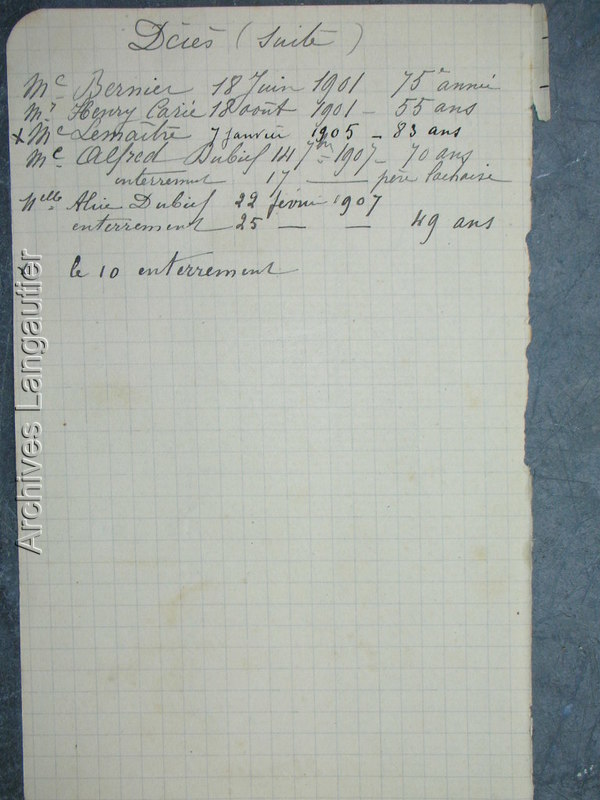 Décès (Suite)
Me Bernier 18 Juin 1901 75e année
Mr Henry Carié 18 août 1901 - 55 ans
x Me Lemaitre 7 janvier 1905 - 83 ans
Me Alfred Dubief 14 7bre 1907 - 70 ans
enterrement 17 — père Lachaise
Melle Alice Dubief 22 février 1907
enterrement 25 — — 49 ans
le 10 enterrement
Archives Langautier